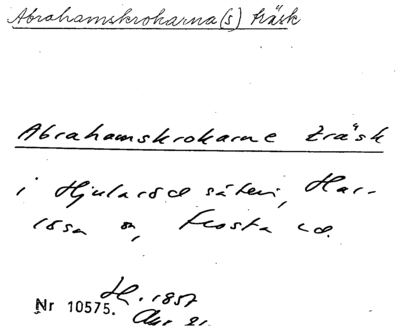 Abrahamskrokarna(s) träsk
Abrahamskrokarne träsk
i Hjularöds säteri, Har-
lösa sn, Frosta hd.
H. 1857
Nr 10575.